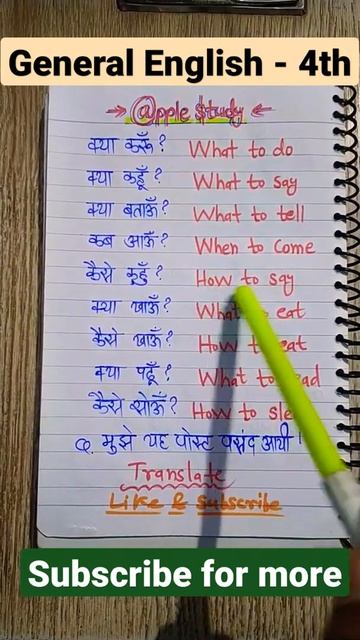 General English - 4th
@pple $tudy
क्या करूँ? What to do
क्या कहूँ? What to say
क्या बताऊँ? What to tell
कब आऊँ? When to come
कैसे कहूँ? How to say
क्या खाऊँ? What eat
कैसे खाऊँ? How
क्या पढूँ? What
कैसे सोऊँ? How to
Q. मुझे यह पोस्ट पसंद आयी!
Translate
Like & Subscribe
Subscribe for more